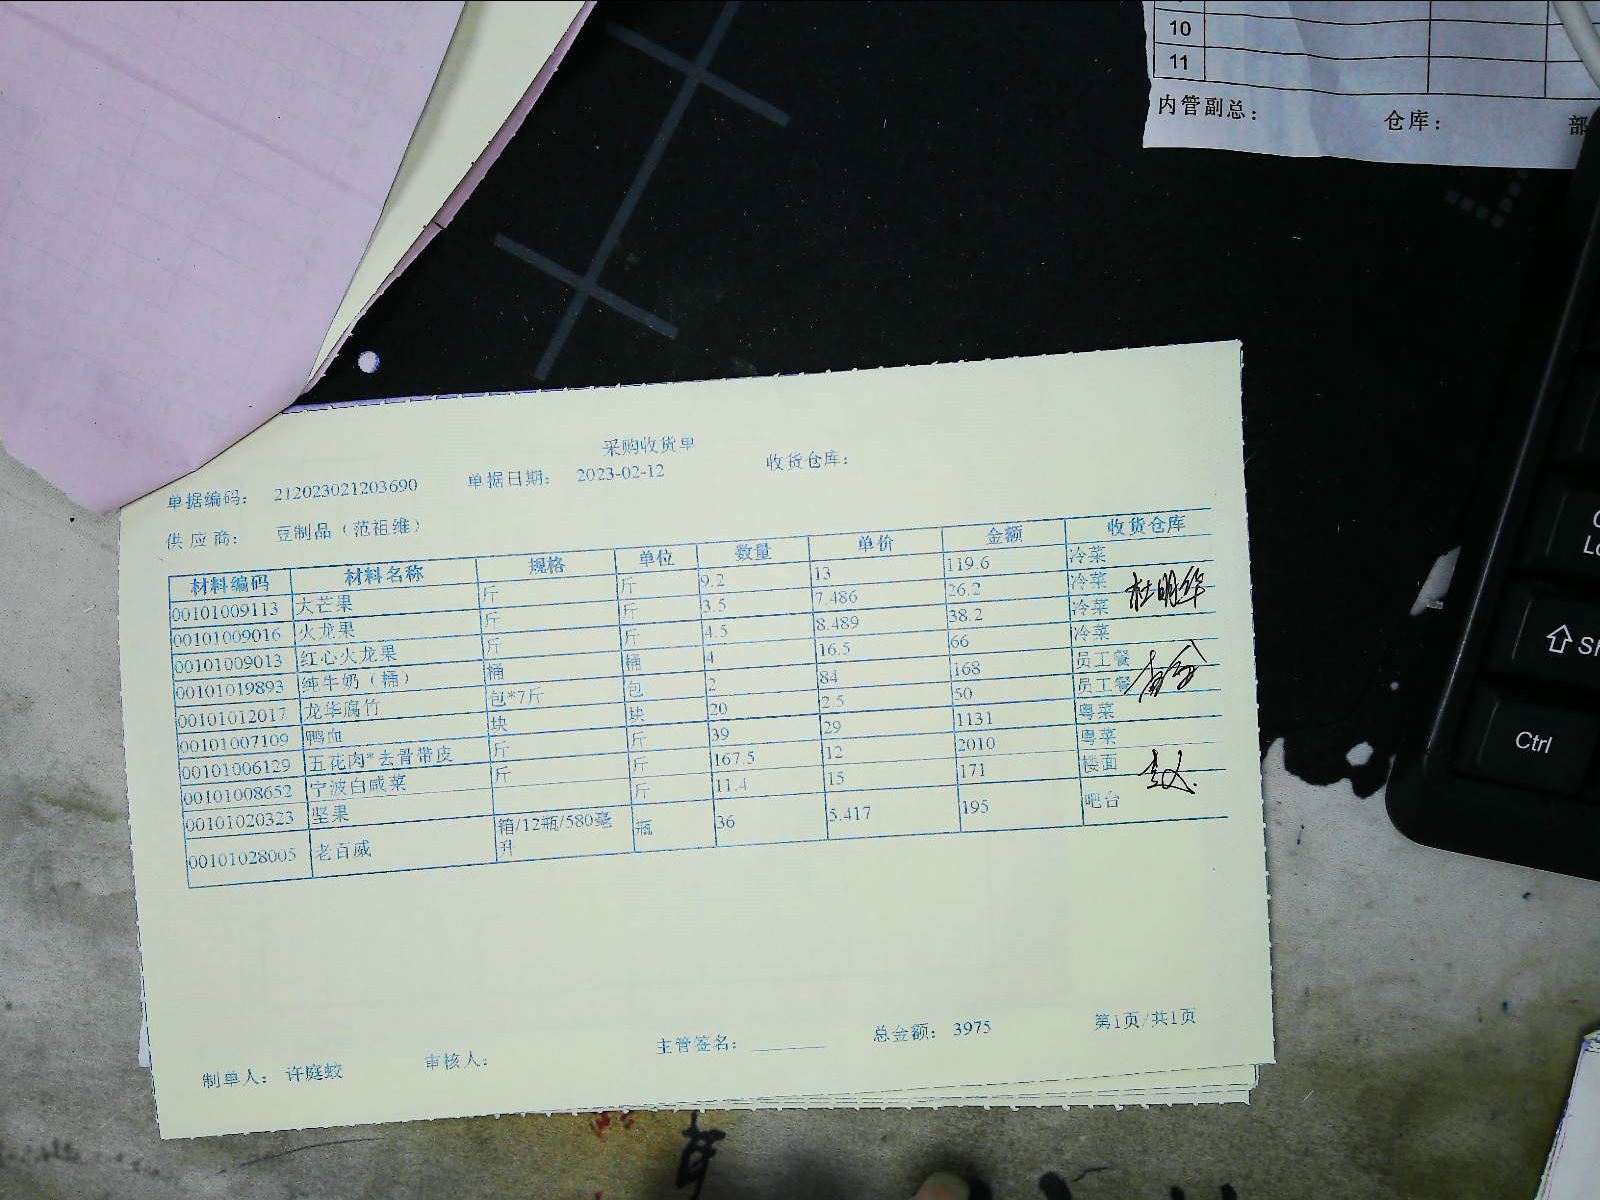 10
11
内管副总： 仓库： 部
采购收货单
单据编码： 212023021203690 单据日期： 2023-02-12 收货仓库：
供应商： 豆制品（范祖维）
材料编码 材料名称 规格 单位 数量 单价 金额 收货仓库
00101009113 大芒果 斤 斤 9.2 13 119.6 冷菜
00101009016 火龙果 斤 斤 3.5 7.486 26.2 冷菜
00101009013 红心火龙果 斤 斤 4.5 8.489 38.2 冷菜
00101019893 纯牛奶（桶） 桶 桶 4 16.5 66 冷菜
00101012017 龙华腐竹 包*7斤 包 2 84 168 员工餐
00101007109 鸭血 块 块 20 2.5 50 员工餐
00101006129 五花肉*去骨带皮 斤 斤 39 29 1131 粤菜
00101008652 宁波白咸菜 斤 斤 167.5 12 2010 粤菜
00101020323 坚果 斤 11.4 15 171 楼面
00101028005 老百威 箱/12瓶/580毫升 瓶 36 5.417 195 吧台
杜明华
制单人： 许庭蛟 审核人： 主管签名： 总金额： 3975 第1页/共1页
Ctrl